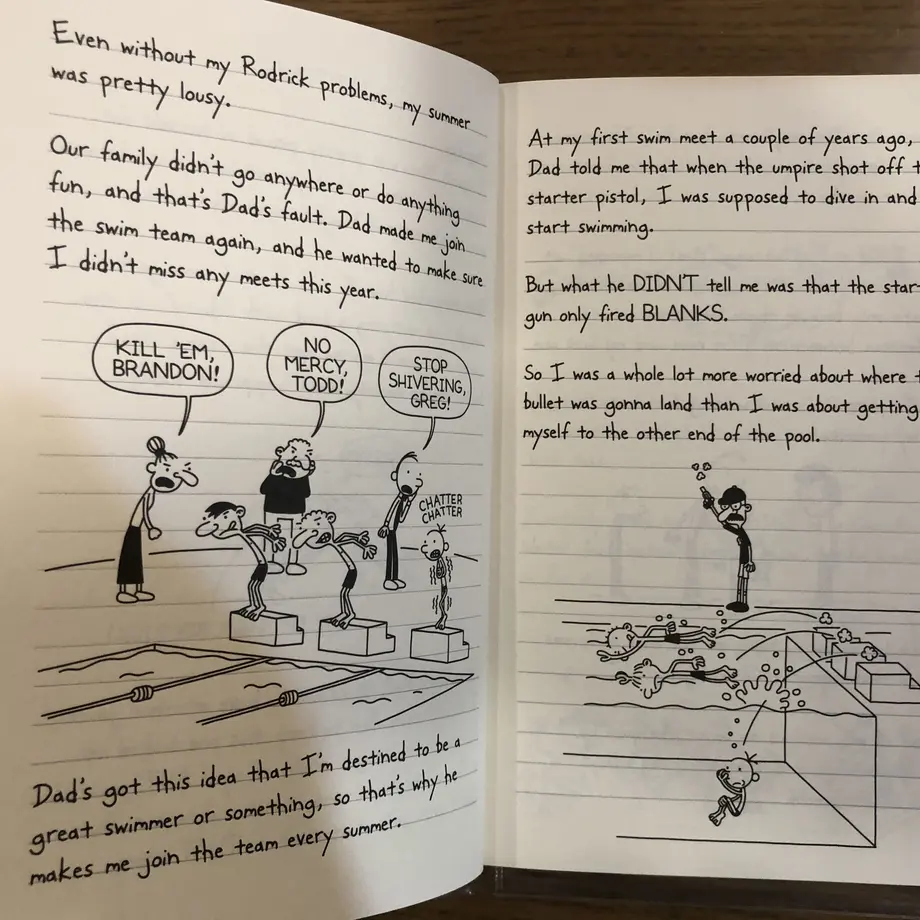 Even without my Rodrick problems, my summer
was pretty lousy.
Our family didn't go anywhere or do anything
fun, and that's Dad's fault. Dad made me join
the swim team again, and he wanted to make sure
I didn't miss any meets this year.
KILL 'EM,
BRANDON!
NO
MERCY,
TODD!
STOP
SHIVERING,
GREG!
CHATTER
CHATTER
Dad's got this idea that I'm destined to be a
great swimmer or something, so that's why he
makes me join the team every summer.
At my first swim meet a couple of years ago,
Dad told me that when the umpire shot off t
starter pistol, I was supposed to dive in and
start swimming.
But what he DIDN'T tell me was that the star
gun only fired BLANKS.
So I was a whole lot more worried about where t
bullet was gonna land than I was about getting
myself to the other end of the pool.